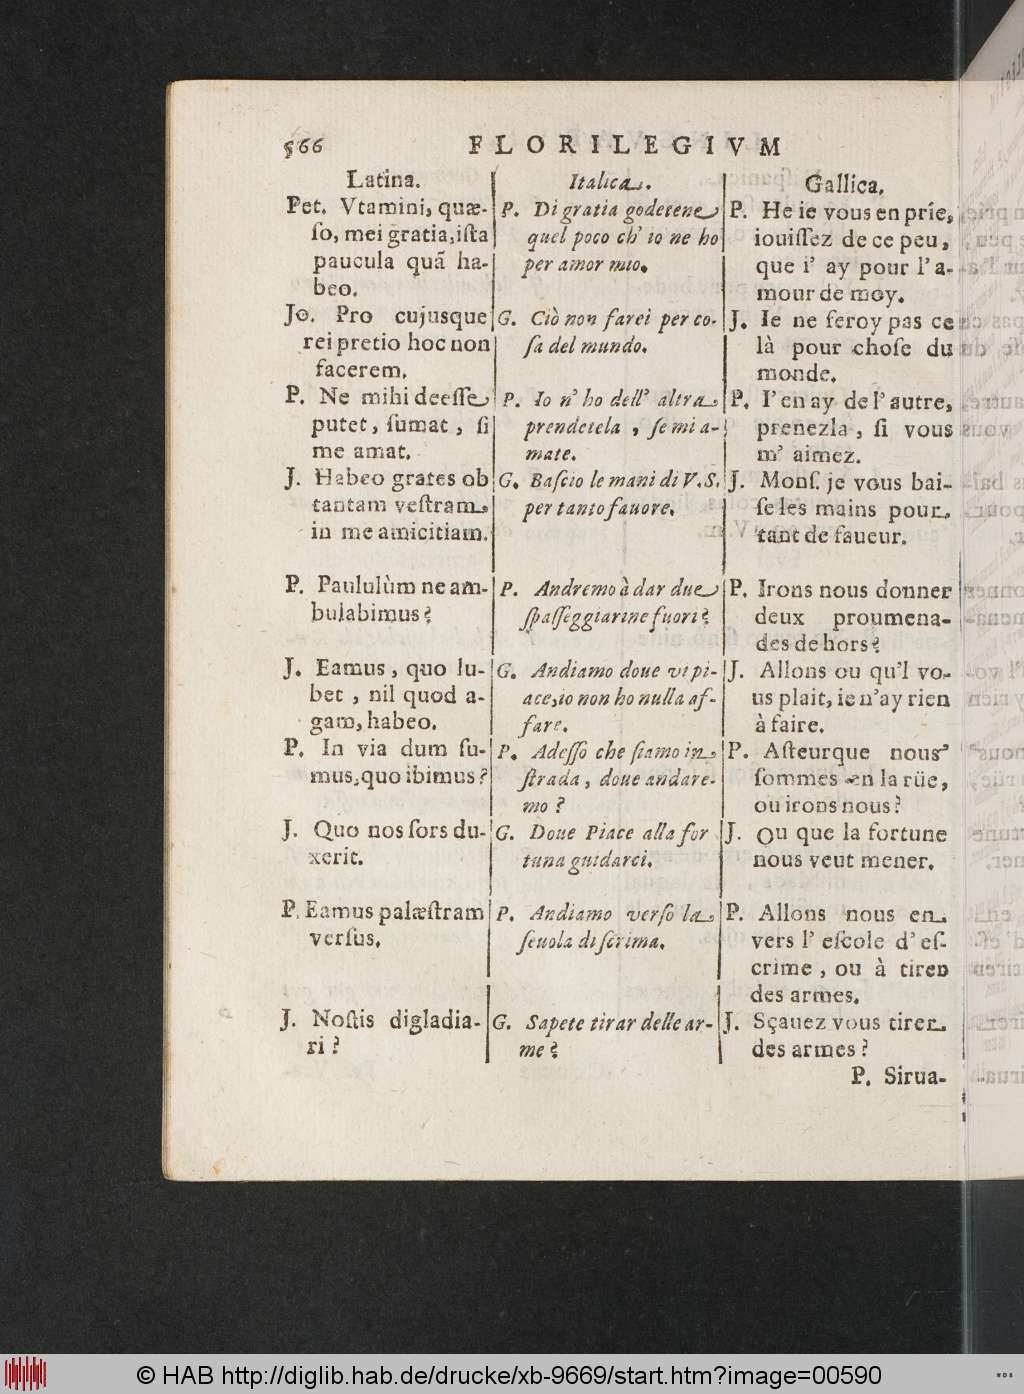 566 FLORILEGIVM
Latina.
Pet. Vtamini, quæ-
ſo, mei gratia, iſta
paucula quã ha-
beo.
Jo. Pro cujusque
rei pretio hoc non
facerem.
P. Ne mihi deeſſe
putet, ſumat, ſi
me amat.
J. Habeo grates ob
tantam veſtram
in me amicitiam.
P. Paululùm ne am-
bulabimus?
J. Eamus, quo lu-
bet, nil quod a-
gam, habeo.
P. In via dum ſu-
mus, quo ibimus?
J. Quo nos ſors du-
xerit.
P. Eamus palæſtram
verſus.
J. Noſtis digladia-
ri?
Italica.
P. Di gratia godetene
quel poco ch' io ne ho
per amor mio.
G. Ciò non farei per co-
ſa del mundo.
P. Io n' ho dell' altra
prendetela, ſe mi a-
mate.
G. Baſcio le mani di V.S.
per tanto fauore.
P. Andremo à dar due
ſpaſſeggiarine fuori?
G. Andiamo doue vi pi-
ace, io non ho nulla af-
fare.
P. Adeſſo che ſiamo in
ſtrada, doue andare-
mo?
G. Doue Piace alla for
tuna guidarci.
P. Andiamo verſo la
ſcuola di ſcrima.
G. Sapete tirar delle ar-
me?
Gallica.
P. He ie vous en príe,
iouiſſez de ce peu,
que i' ay pour l' a-
mour de moy.
J. Ie ne feroy pas ce
là pour choſe du
monde.
P. I' en ay de l' autre,
prenezla, ſi vous
m' aimez.
J. Monſ. je vous bai-
ſe les mains pour
tant de faueur.
P. Irons nous donner
deux proumena-
des de hors?
J. Allons ou qu'l vo-
us plait, ie n'ay rien
à faire.
P. Aſteurque nous
ſommes en la rüe,
ou irons nous?
J. Ou que la fortune
nous veut mener.
P. Allons nous en
vers l' eſcole d' eſ-
crime, ou à tirer
des armes.
J. Sçauez vous tirer
des armes?
P. Sirua-
© HAB http://diglib.hab.de/drucke/xb-9669/start.htm?image=00590